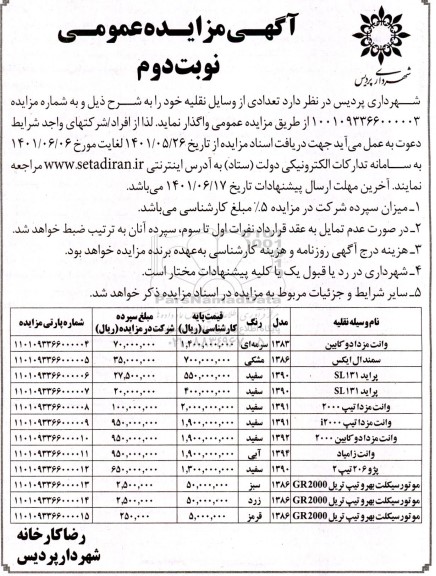 آگهی مزایده عمومی
نوبت دوم
شهرداری پردیس
شهرداری پردیس در نظر دارد تعدادی از وسایل نقلیه خود را به شرح ذیل و به شماره مزایده
۱۰۰۱۰۹۳۳۶۶۰۰۰۰۰۳ از طریق مزایده عمومی واگذار نماید. لذا از افراد/شرکتهای واجد شرایط
دعوت به عمل می‌آید جهت دریافت اسناد مزایده از تاریخ ۱۴۰۱/۰۵/۲۶ لغایت مورخ ۱۴۰۱/۰۶/۰۶
به سامانه تدارکات الکترونیکی دولت (ستاد) به آدرس اینترنتی www.setadiran.ir مراجعه
نمایند. آخرین مهلت ارسال پیشنهادات تاریخ ۱۴۰۱/۰۶/۱۷ می‌باشد.
۱ـ میزان سپرده شرکت در مزایده ۵٪ مبلغ کارشناسی می‌باشد.
۲ـ در صورت عدم تمایل به عقد قرارداد نفرات اول تا سوم، سپرده آنان به ترتیب ضبط خواهد شد.
۳ـ هزینه درج آگهی روزنامه و هزینه کارشناسی به‌عهده برنده مزایده خواهد بود.
۴ـ شهرداری در رد یا قبول یک یا کلیه پیشنهادات مختار است.
۵ـ سایر شرایط و جزئیات مربوط به مزایده در اسناد مزایده ذکر خواهد شد.
نام وسیله نقلیه مدل رنگ قیمت پایه کارشناسی (ریال) مبلغ سپرده شرکت در مزایده (ریال) شماره پارتی مزایده
وانت مزدا دو کابین ۱۳۸۳ سرمه‌ای ۱,۴۰۰,۰۰۰,۰۰۰ ۷۰,۰۰۰,۰۰۰ ۱۱۰۱۰۹۳۳۶۶۰۰۰۰۰۴
سمند ال ایکس ۱۳۸۶ مشکی ۷۰۰,۰۰۰,۰۰۰ ۳۵,۰۰۰,۰۰۰ ۱۱۰۱۰۹۳۳۶۶۰۰۰۰۰۵
پراید SL۱۳۱ ۱۳۹۰ سفید ۵۵۰,۰۰۰,۰۰۰ ۲۷,۵۰۰,۰۰۰ ۱۱۰۱۰۹۳۳۶۶۰۰۰۰۰۶
پراید SL۱۳۱ ۱۳۹۰ سفید ۴۰۰,۰۰۰,۰۰۰ ۲۰,۰۰۰,۰۰۰ ۱۱۰۱۰۹۳۳۶۶۰۰۰۰۰۷
وانت مزدا تیپ ۲۰۰۰ ۱۳۹۱ سفید ۲,۰۰۰,۰۰۰,۰۰۰ ۱۰۰,۰۰۰,۰۰۰ ۱۱۰۱۰۹۳۳۶۶۰۰۰۰۰۸
وانت مزدا تیپ ۲۰۰۰i ۱۳۹۱ سفید ۱,۹۰۰,۰۰۰,۰۰۰ ۹۵۰,۰۰۰,۰۰۰ ۱۱۰۱۰۹۳۳۶۶۰۰۰۰۰۹
وانت مزدا دو کابین ۲۰۰۰ ۱۳۹۲ سفید ۱,۹۰۰,۰۰۰,۰۰۰ ۹۵۰,۰۰۰,۰۰۰ ۱۱۰۱۰۹۳۳۶۶۰۰۰۰۱۰
وانت زامیاد ۱۳۹۴ آبی ۱,۹۰۰,۰۰۰,۰۰۰ ۹۵۰,۰۰۰,۰۰۰ ۱۱۰۱۰۹۳۳۶۶۰۰۰۰۱۱
پژو ۲۰۶ تیپ ۲ ۱۳۹۰ سفید ۱,۳۰۰,۰۰۰,۰۰۰ ۶۵۰,۰۰۰,۰۰۰ ۱۱۰۱۰۹۳۳۶۶۰۰۰۰۱۲
موتورسیکلت بهرو تیپ تریل GR2000 ۱۳۸۶ سبز ۵۰,۰۰۰,۰۰۰ ۲,۵۰۰,۰۰۰ ۱۱۰۱۰۹۳۳۶۶۰۰۰۰۱۳
موتورسیکلت بهرو تیپ تریل GR2000 ۱۳۸۶ زرد ۵۰,۰۰۰,۰۰۰ ۲,۵۰۰,۰۰۰ ۱۱۰۱۰۹۳۳۶۶۰۰۰۰۱۴
موتورسیکلت بهرو تیپ تریل GR2000 ۱۳۸۶ قرمز ۵,۰۰۰,۰۰۰ ۲۵۰,۰۰۰ ۱۱۰۱۰۹۳۳۶۶۰۰۰۰۱۵
رضا کارخانه
شهردار پردیس